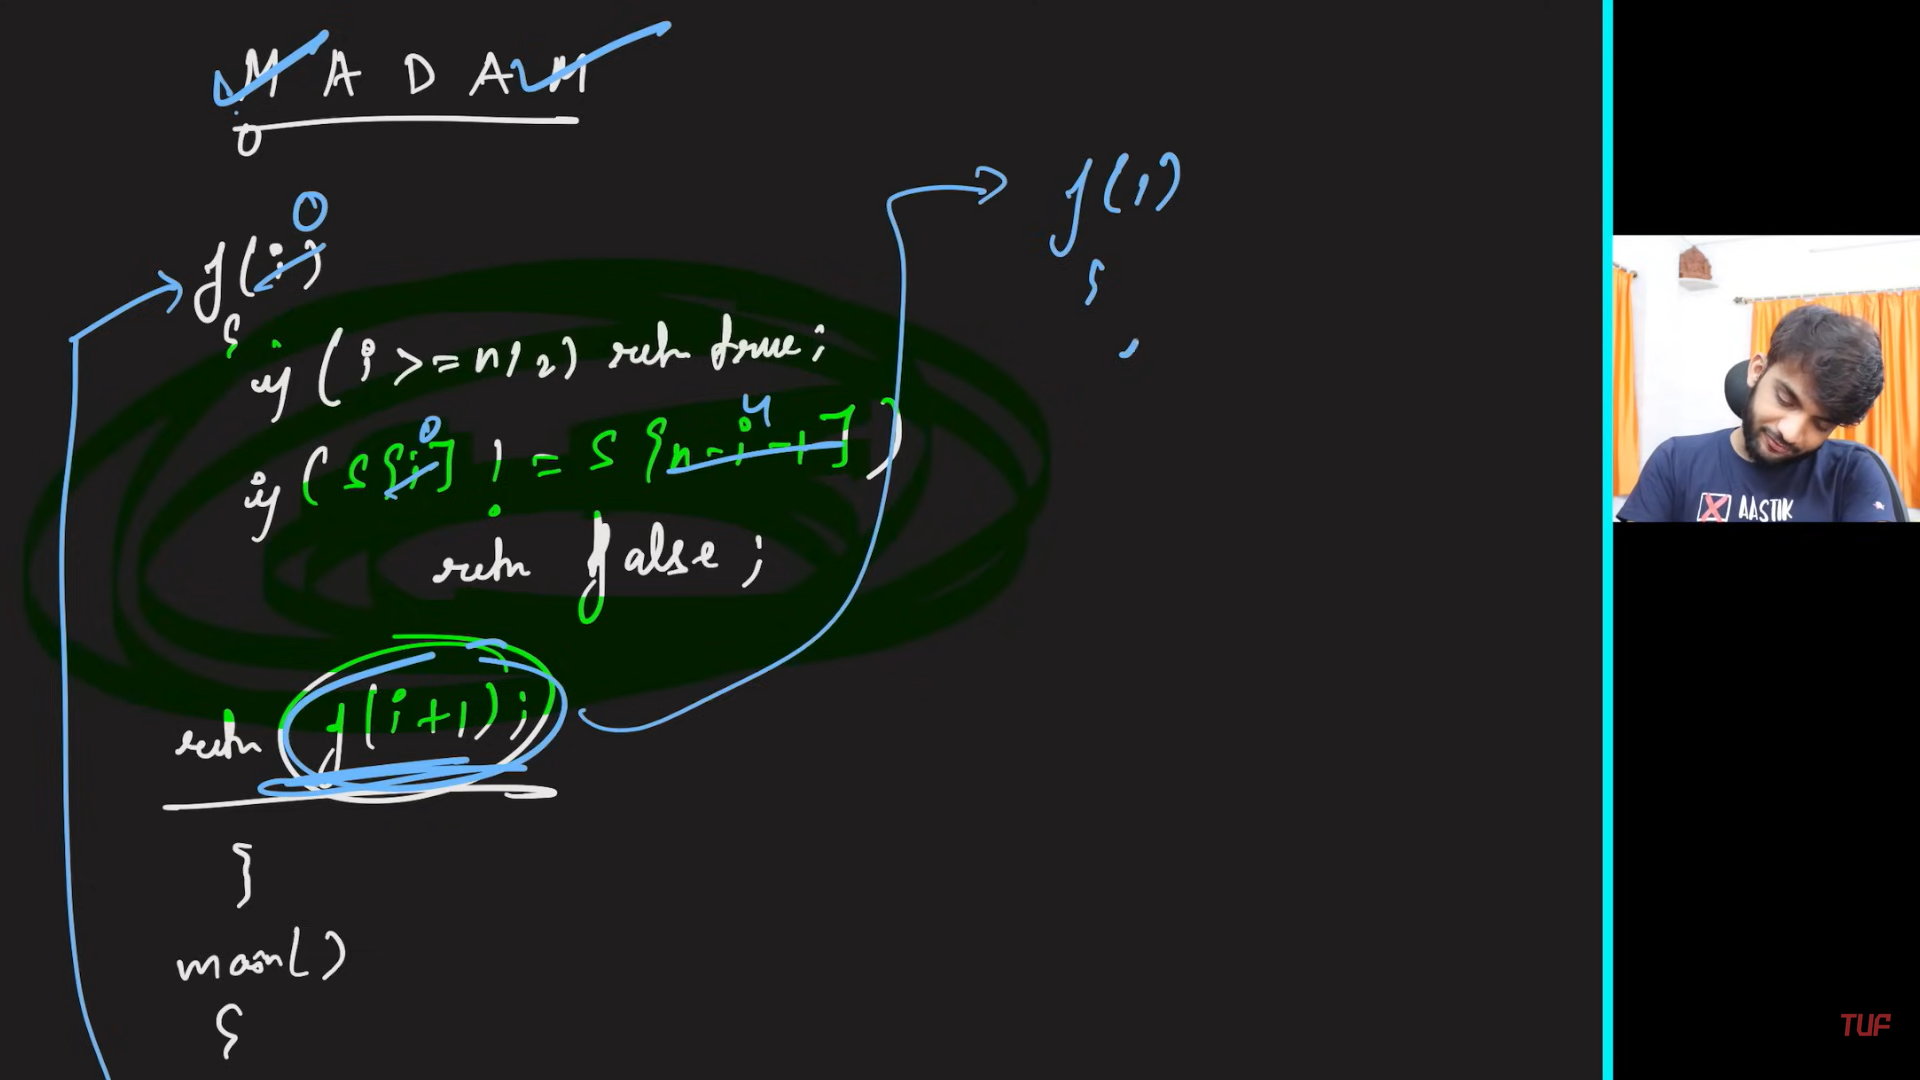 MADAM
0
0
f(i)
{
if (i >= n/2) return true;
0
4
if (s[i] != s[n-i-1])
return false;
return f(i+1);
}
main()
{
f(1)
{
AASTIK
TUF